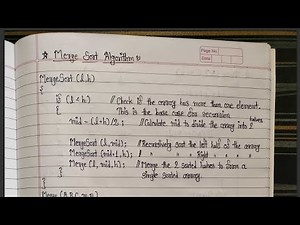 Page No.
Date
* Merge Sort Algorithm :
MergeSort (l, h)
{
if (l < h) // Check if the array has more than one element.
{ This is the base case for recursion
mid = (l+h)/2 ; // Calculate mid to divide the array into 2 halves
MergeSort (l, mid); // Recursively sort the left half of the array
MergeSort (mid+1, h); // " " " Right " " " "
Merge (l, mid, h); // Merge the 2 sorted halves to form a
single sorted array.
}
Merge (A, B, C, m, n)